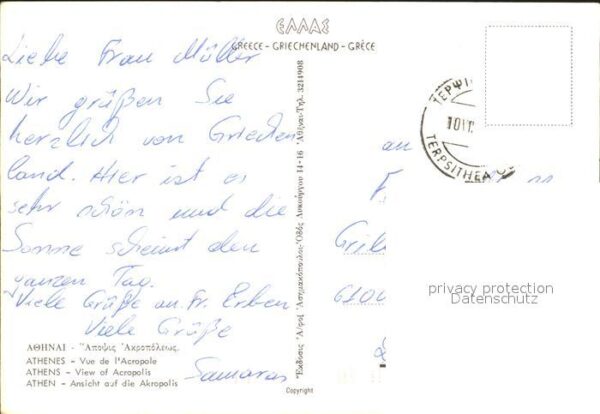 ΕΛΛΑΣ
GREECE - GRIECHENLAND - GRÈCE
Liebe Frau Müller
Wir grüßen Sie
herzlich von Griechen
land. Hier ist es
sehr schön und die
Sonne scheint den
ganzen Tag.
Viele Grüße an Fr. Erben
Viele Grüße
Samaras
ΑΘΗΝΑΙ - Ἄποψις Ἀκροπόλεως.
ATHENES - Vue de l'Acropole
ATHENS - View of Acropolis
ATHEN - Ansicht auf die Akropolis
Copyright
Ἐκδόσεις Λυκούργου 14-16 Ἀθῆναι Τηλ. 3214908
ΤΕΡΨΙ
TERPSITHEA
an
F
6100
privacy protection
Datenschutz